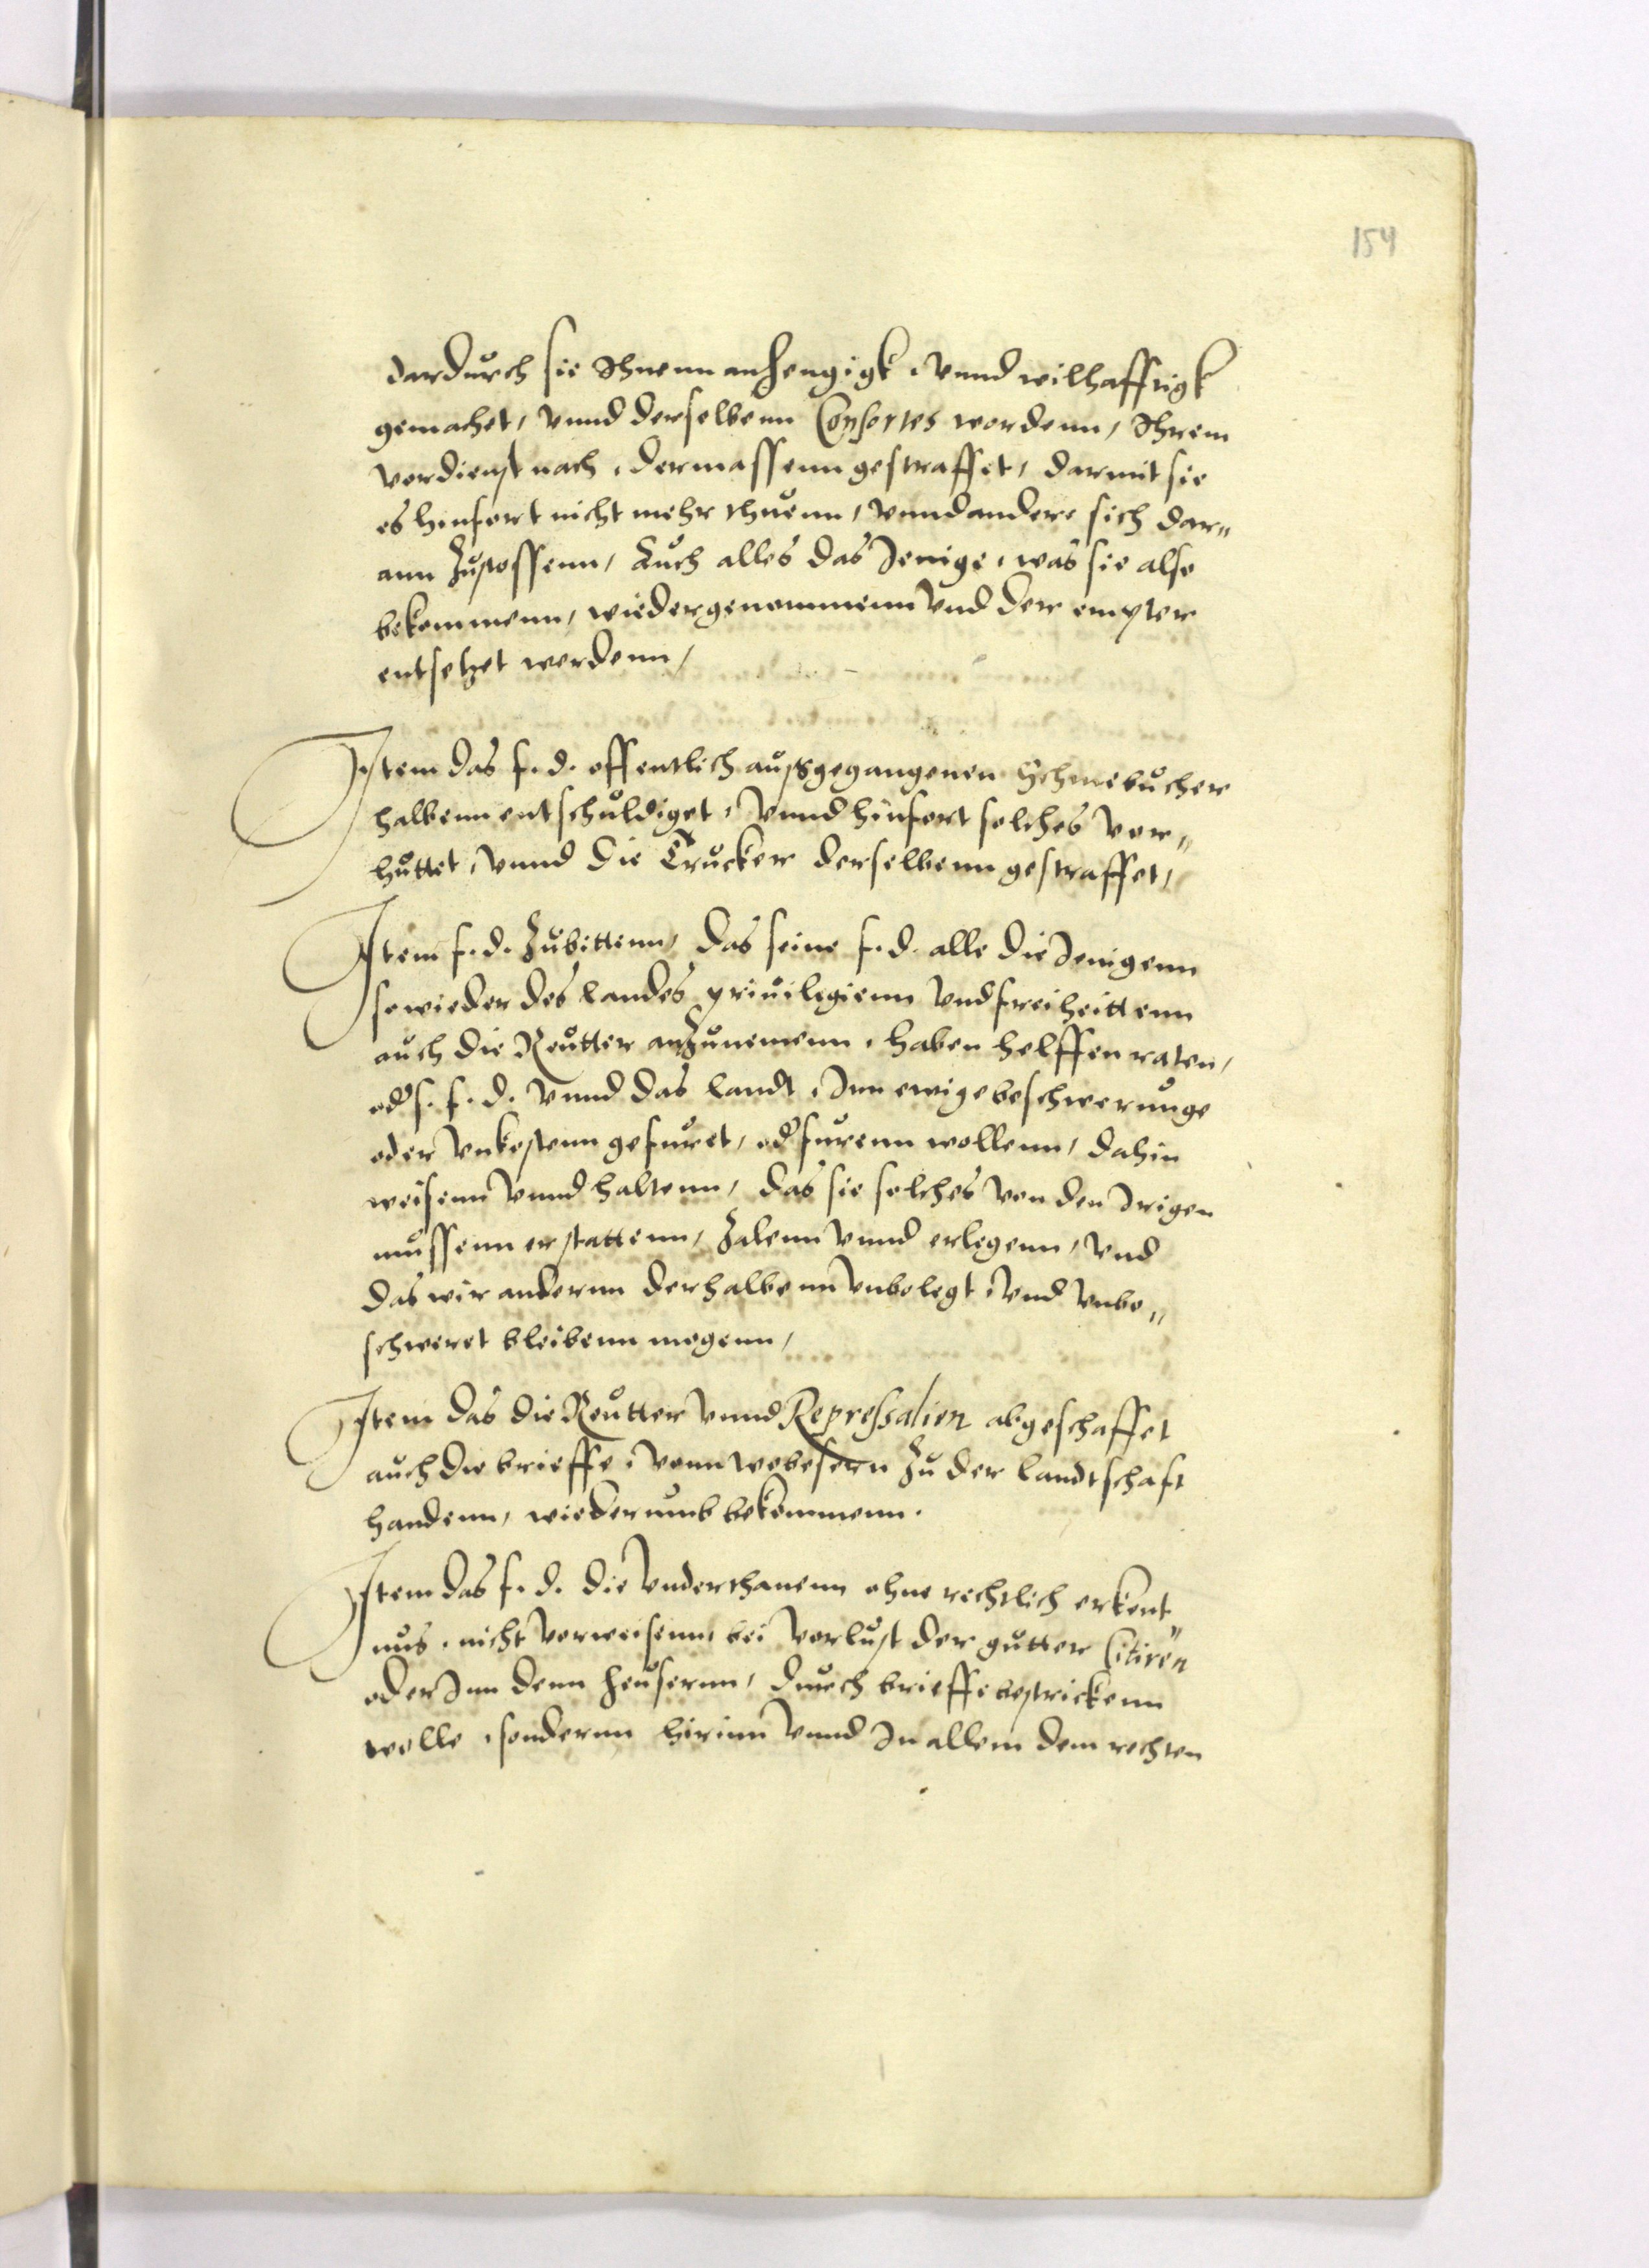 154
dardurch sie Ihnenn anhengigk, vnnd wilhafftigk
gemachet, vnnd derselbenn Consortes wordenn, Ihrem
vordienst nach, dermassenn gestraffet, darmit sie
es hinfort nicht mehr thuenn, vnnd andere sich dar„
ann zustossenn, Auch alles das Jenige, was sie also
bekommenn, wiedergenommenn vnd der empter
entsetzet werdenn,
Item das f. d. offentlich außgegangenen Schmebucher
halbenn entschuldiget, vnnd hinfort solches vor„
huttet, vnnd die Trucker derselbenn gestraffet,
Item f. d. Zubittenn, das seine f. d. alle die Jenigenn
so wieder des landes priuilegienn vnd freiheittenn
auch die Reutter anzunemenn, haben helffen raten,
od s. f. d. vnnd das landt, Inn ewige beschwerunge
oder vnkostenn gefuret, od furenn wollenn, dahin
weisenn vnnd haltenn, das sie solches von den Irigen
mussenn erstattenn, Zalenn vnnd erlegenn, vnd
das wir andernn derhalbenn vnbelegt, vnd vnbe„
schweret bleibenn mogenn,
Item das die Reutter vnnd Repressalien abgeschaffet
auch die brieffe, vonn wobesern Zu der landtschaft
handenn, wiederumb bekommenn.
Item das f. d. die vnderthanenn ohne rechtlich erkent„
nus, nicht vorweisenn, bei vorlust der gutter Citiren
oder Inn denn heusernn, durch brieffe bestrickenn
wolle, sondernn hirinn vnnd In allem dem rechten